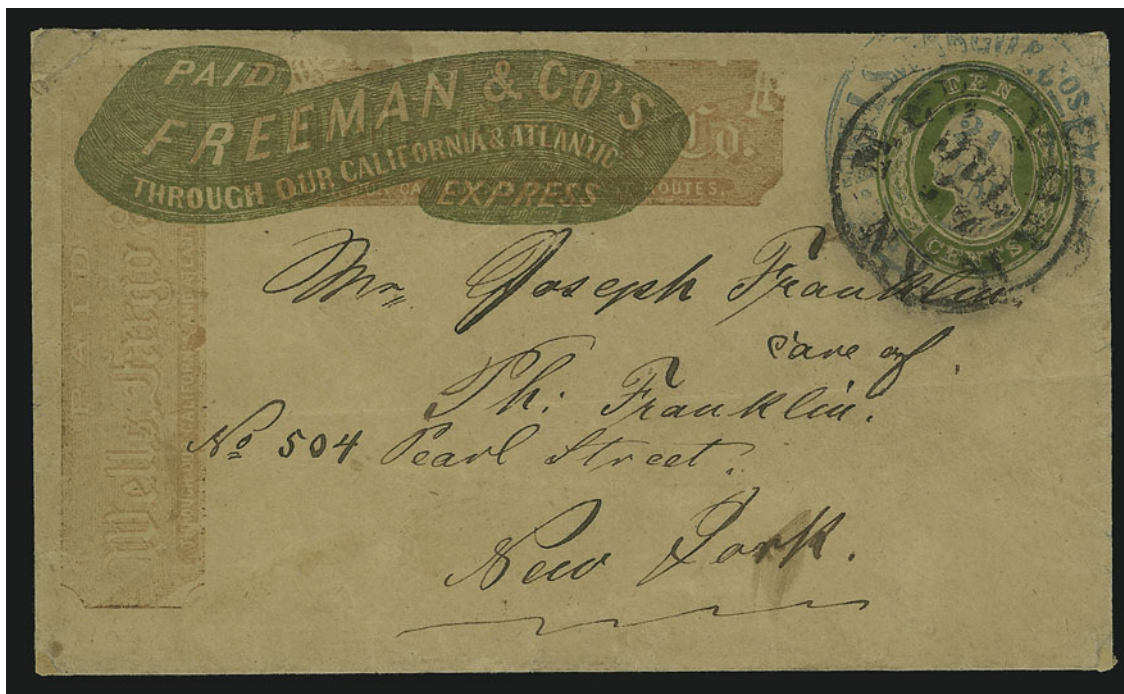 PAID
FREEMAN & CO'S
THROUGH OUR CALIFORNIA & ATLANTIC
EXPRESS
Co.
ROUTES.
PAID
Wells Fargo &
THROUGH OUR CALIFORNIA AND
TEN
CENTS
JUL
Mr. Joseph Franklin
care of
Ph: Franklin.
No 504 Pearl Street.
New York.